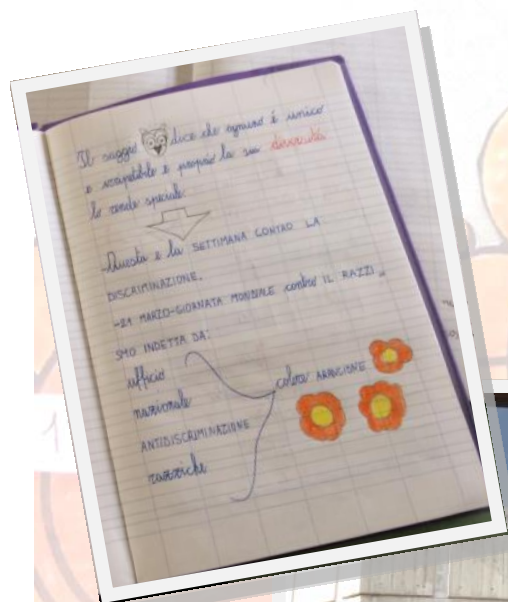 Il saggio dice che ognuno è unico
e irripetibile e proprio la sua diversità
lo rende speciale.
Questa è la SETTIMANA CONTRO LA
DISCRIMINAZIONE.
-21 MARZO-GIORNATA MONDIALE contro IL RAZZI
SMO INDETTA DA:
ufficio
nazionale
ANTIDISCRIMINAZIONE
razziche
colore ARANCIONE
1